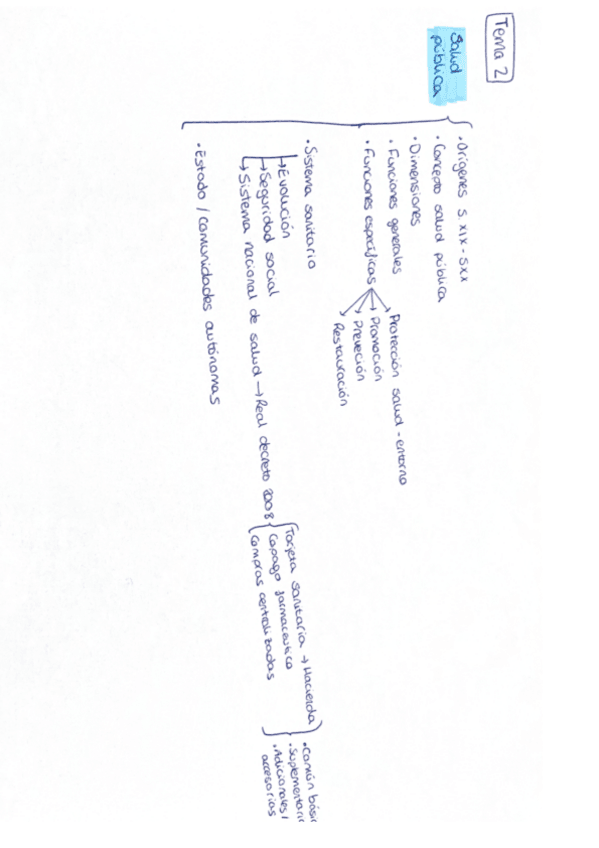 Tema 2
Salud
pública
• Orígenes S. XIX - S XX
• Concepto salud pública
• Dimensiones
• Funciones generales
• Funciones específicas
Protección salud - entorno
Promoción
Preveción
Restauración
• Sistema sanitario
→ Evolución
→ Seguridad social
→ Sistema nacional de salud → Real decreto 2008
Tarjeta sanitaria → Hacienda
Copago farmaceutico
Compras centralizadas
• Común básic
• Suplementari
• Adicionales /
accesorias
• Estado / comunidades autónomas